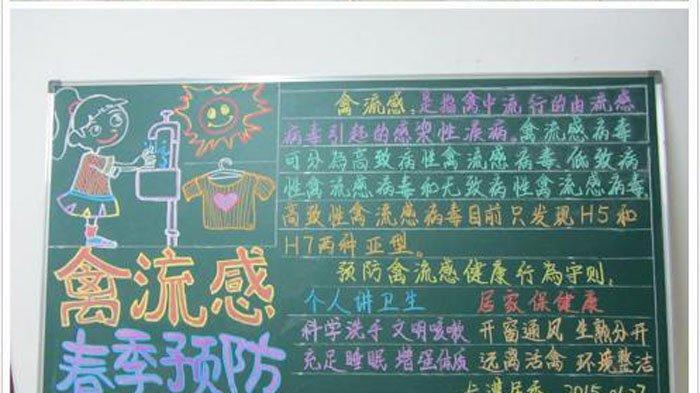 禽流感
春季预防
禽流感,是指禽中流行的由流感
病毒引起的感染性疾病。禽流感病毒
可分為高致病性禽流感病毒、低致病
性禽流感病毒和无致病性禽流感病毒。
高致性禽流感病毒目前只发现H5和
H7两种亚型。
预防禽流感健康行為守则:
个人讲卫生 居家保健康
科学洗手 文明咳嗽 开窗通风 生熟分开
充足睡眠 增强体质 远离活禽 环境整洁